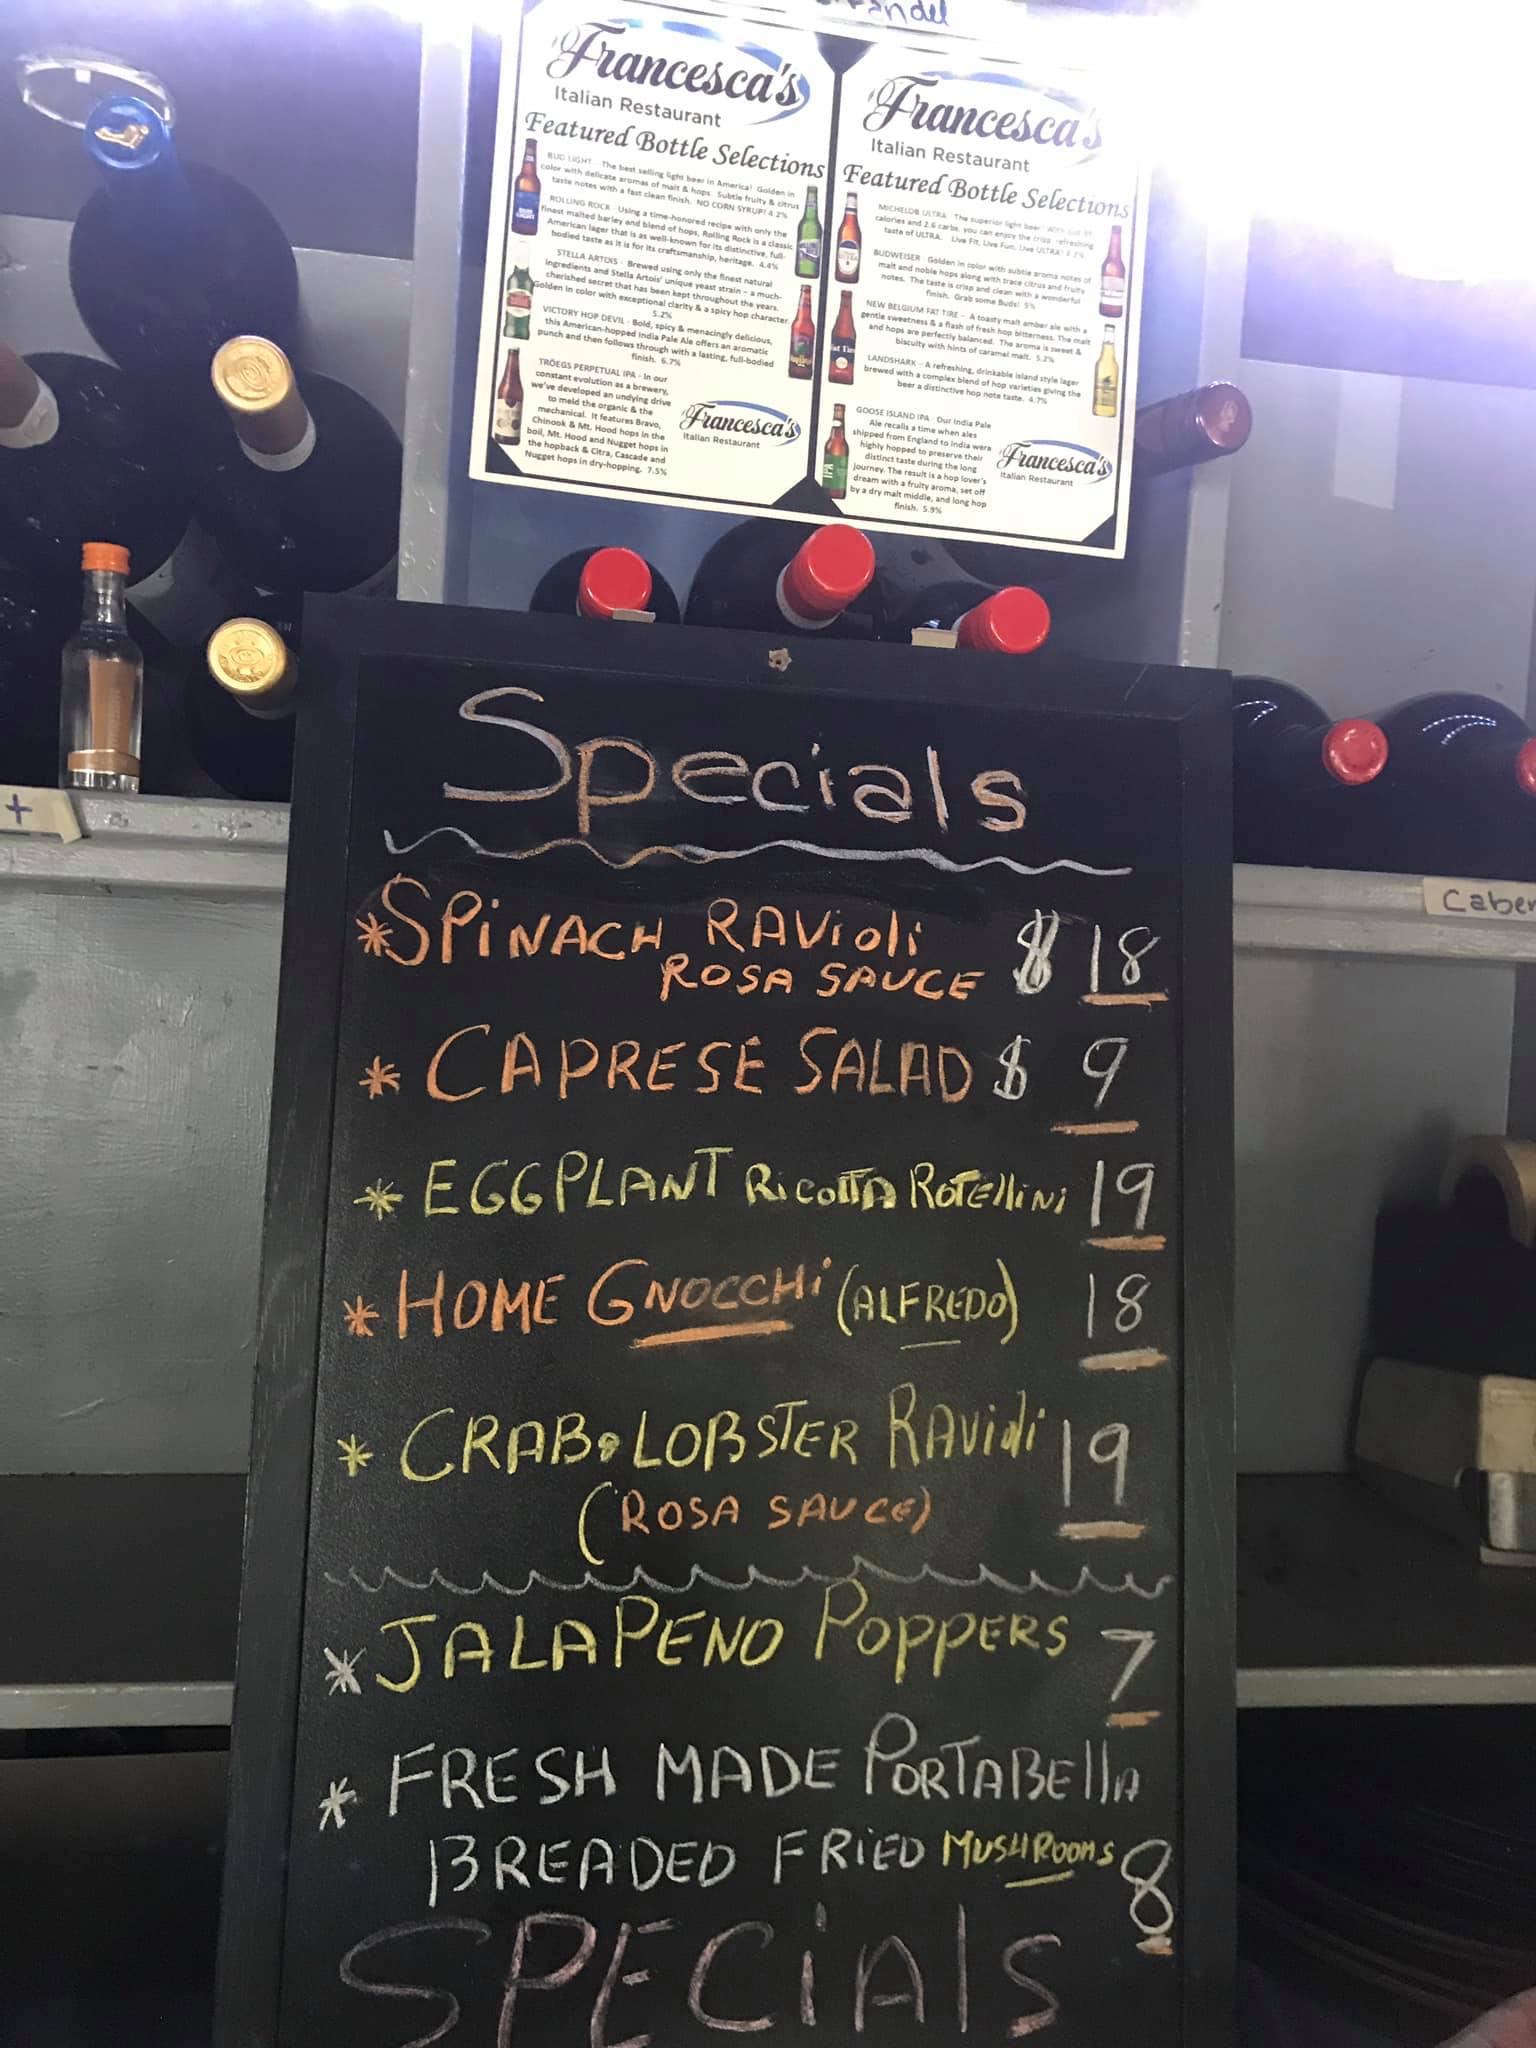 andel
Francesca's
Italian Restaurant
Featured Bottle Selections
BUD LIGHT - The best selling light beer in America! Golden in
color with delicate aromas of malt & hops. Subtle fruity & citrus
taste notes with a fast clean finish. NO CORN SYRUP! 4.2%
ROLLING ROCK - Using a time-honored recipe with only the
finest malted barley and blend of hops, Rolling Rock is a classic
American lager that is as well-known for its distinctive, full-
bodied taste as it is for its craftsmanship, heritage. 4.4%
STELLA ARTOIS - Brewed using only the finest natural
ingredients and Stella Artois' unique yeast strain – a much-
cherished secret that has been kept throughout the years.
Golden in color with exceptional clarity & a spicy hop character
5.2%
VICTORY HOP DEVIL - Bold, spicy & menacingly delicious,
this American-hopped India Pale Ale offers an aromatic
punch and then follows through with a lasting, full-bodied
finish. 6.7%
TRÖEGS PERPETUAL IPA - In our
constant evolution as a brewery,
we've developed an undying drive
to meld the organic & the
mechanical. It features Bravo,
Chinook & Mt. Hood hops in the
boil, Mt. Hood and Nugget hops in
the hopback & Citra, Cascade and
Nugget hops in dry-hopping. 7.5%
Francesca's
Italian Restaurant
Francesca's
Italian Restaurant
Featured Bottle Selections
MICHELOB ULTRA - The superior light beer! With just 95
calories and 2.6 carbs, you can enjoy the crisp, refreshing
taste of ULTRA. Live Fit, Live Fun, Live ULTRA!
BUDWEISER Golden in color with subtle aroma notes of
malt and noble hops along with trace citrus and fruity
notes. The taste is crisp and clean with a wonderful
finish. Grab some Buds! 5%
NEW BELGIUM FAT TIRE – A toasty malt amber ale with a
gentle sweetness & a flash of fresh hop bitterness. The malt
and hops are perfectly balanced. The aroma is sweet &
biscuity with hints of caramel malt. 5.2%
LANDSHARK – A refreshing, drinkable island style lager
brewed with a complex blend of hop varieties giving the
beer a distinctive hop note taste. 4.7%
GOOSE ISLAND IPA - Our India Pale
Ale recalls a time when ales
shipped from England to India were
highly hopped to preserve their
distinct taste during the long
journey. The result is a hop lover's
dream with a fruity aroma, set off
by a dry malt middle, and long hop
finish. 5.9%
Francesca's
Italian Restaurant
+
Caber
Specials
*SPiNACH RAVioli $ 18
ROSA SAUCE
* CAPRESE SALAD $ 9
* EGGPLANT RicoTTA ROTEllINi 19
* HOME GNOCCHi (ALFREDO) 18
* CRAB•LOBSTER RAVioli 19
(ROSA SAUCE)
* JALAPENO POPPERS 7
* FRESH MADE PORTABEllA
BREADED FRiED MUSHROOMS 8
SPECiAlS